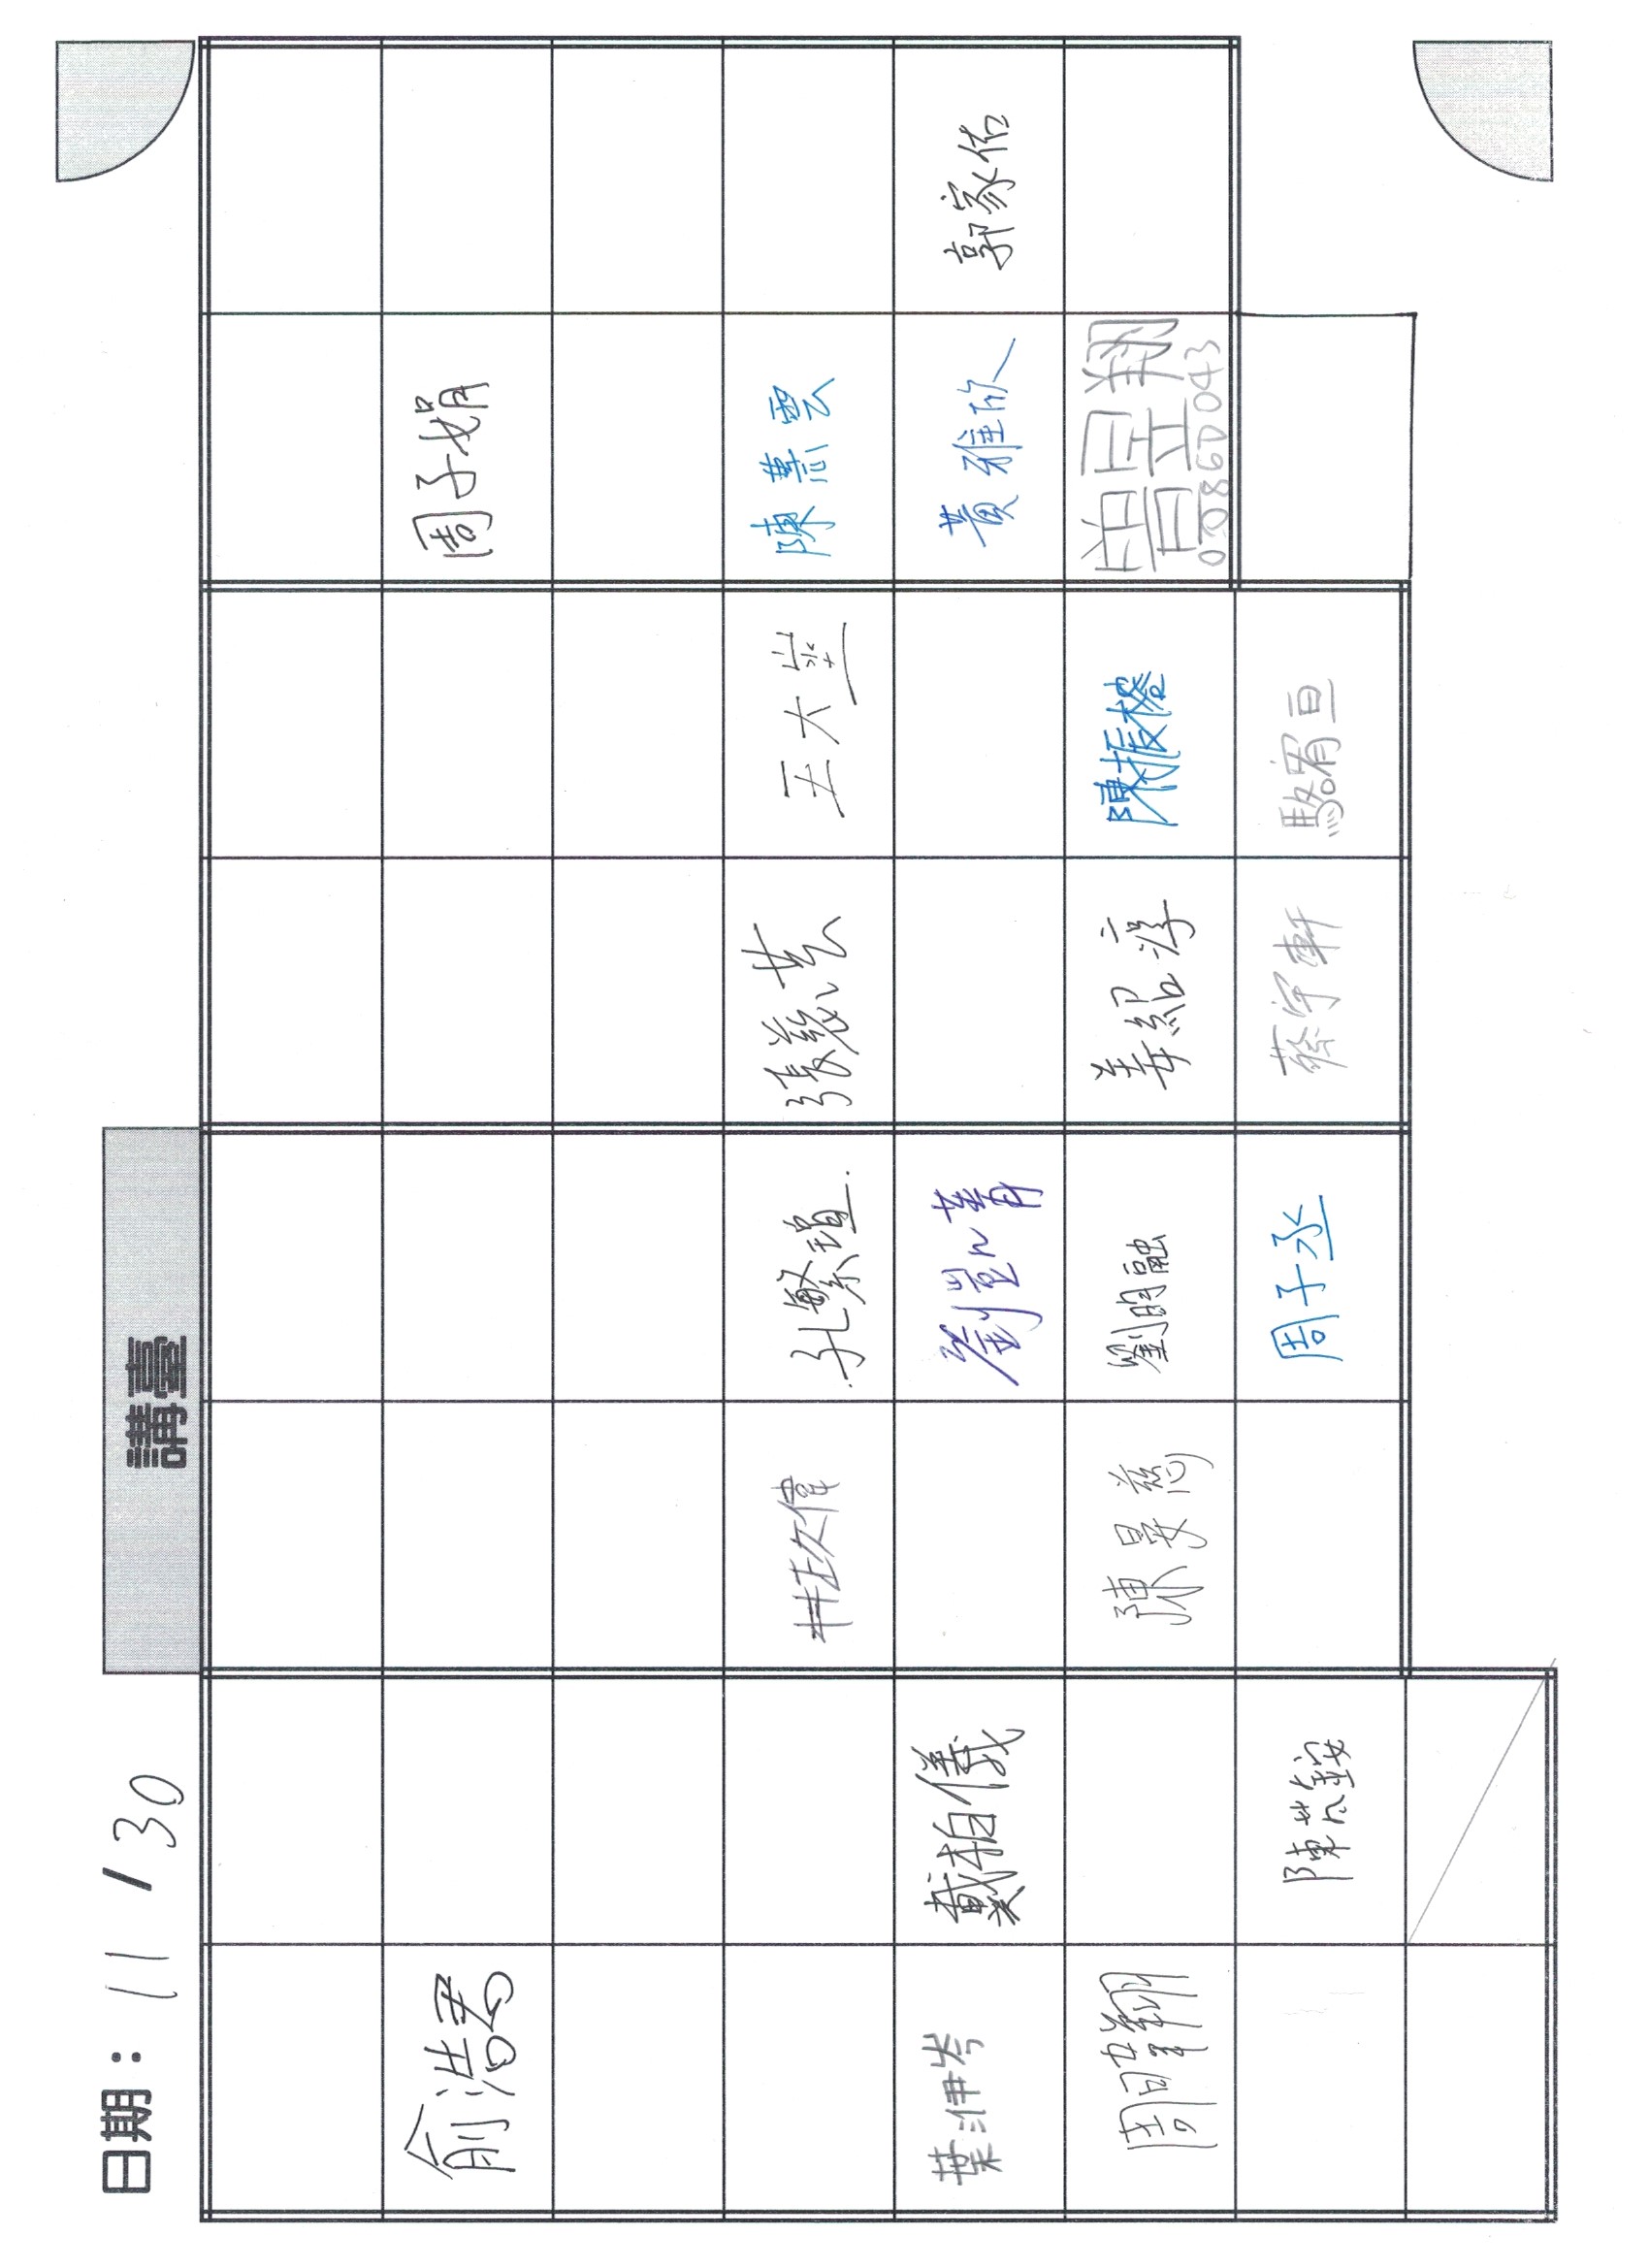 日期： 11 / 30
講臺
俞浩君 周子娟
孔繁瑄 張慈芸 王大 陳蕙雲
葉洢岑 戴柏儀 劉凱菁 黃雅欣 郭家佑
周暐翔 陳晏慈 劉昀融 姜紹淳 陳振 曾昱翔
043
陳 周子丞 蔡宇軒 駱宥亘